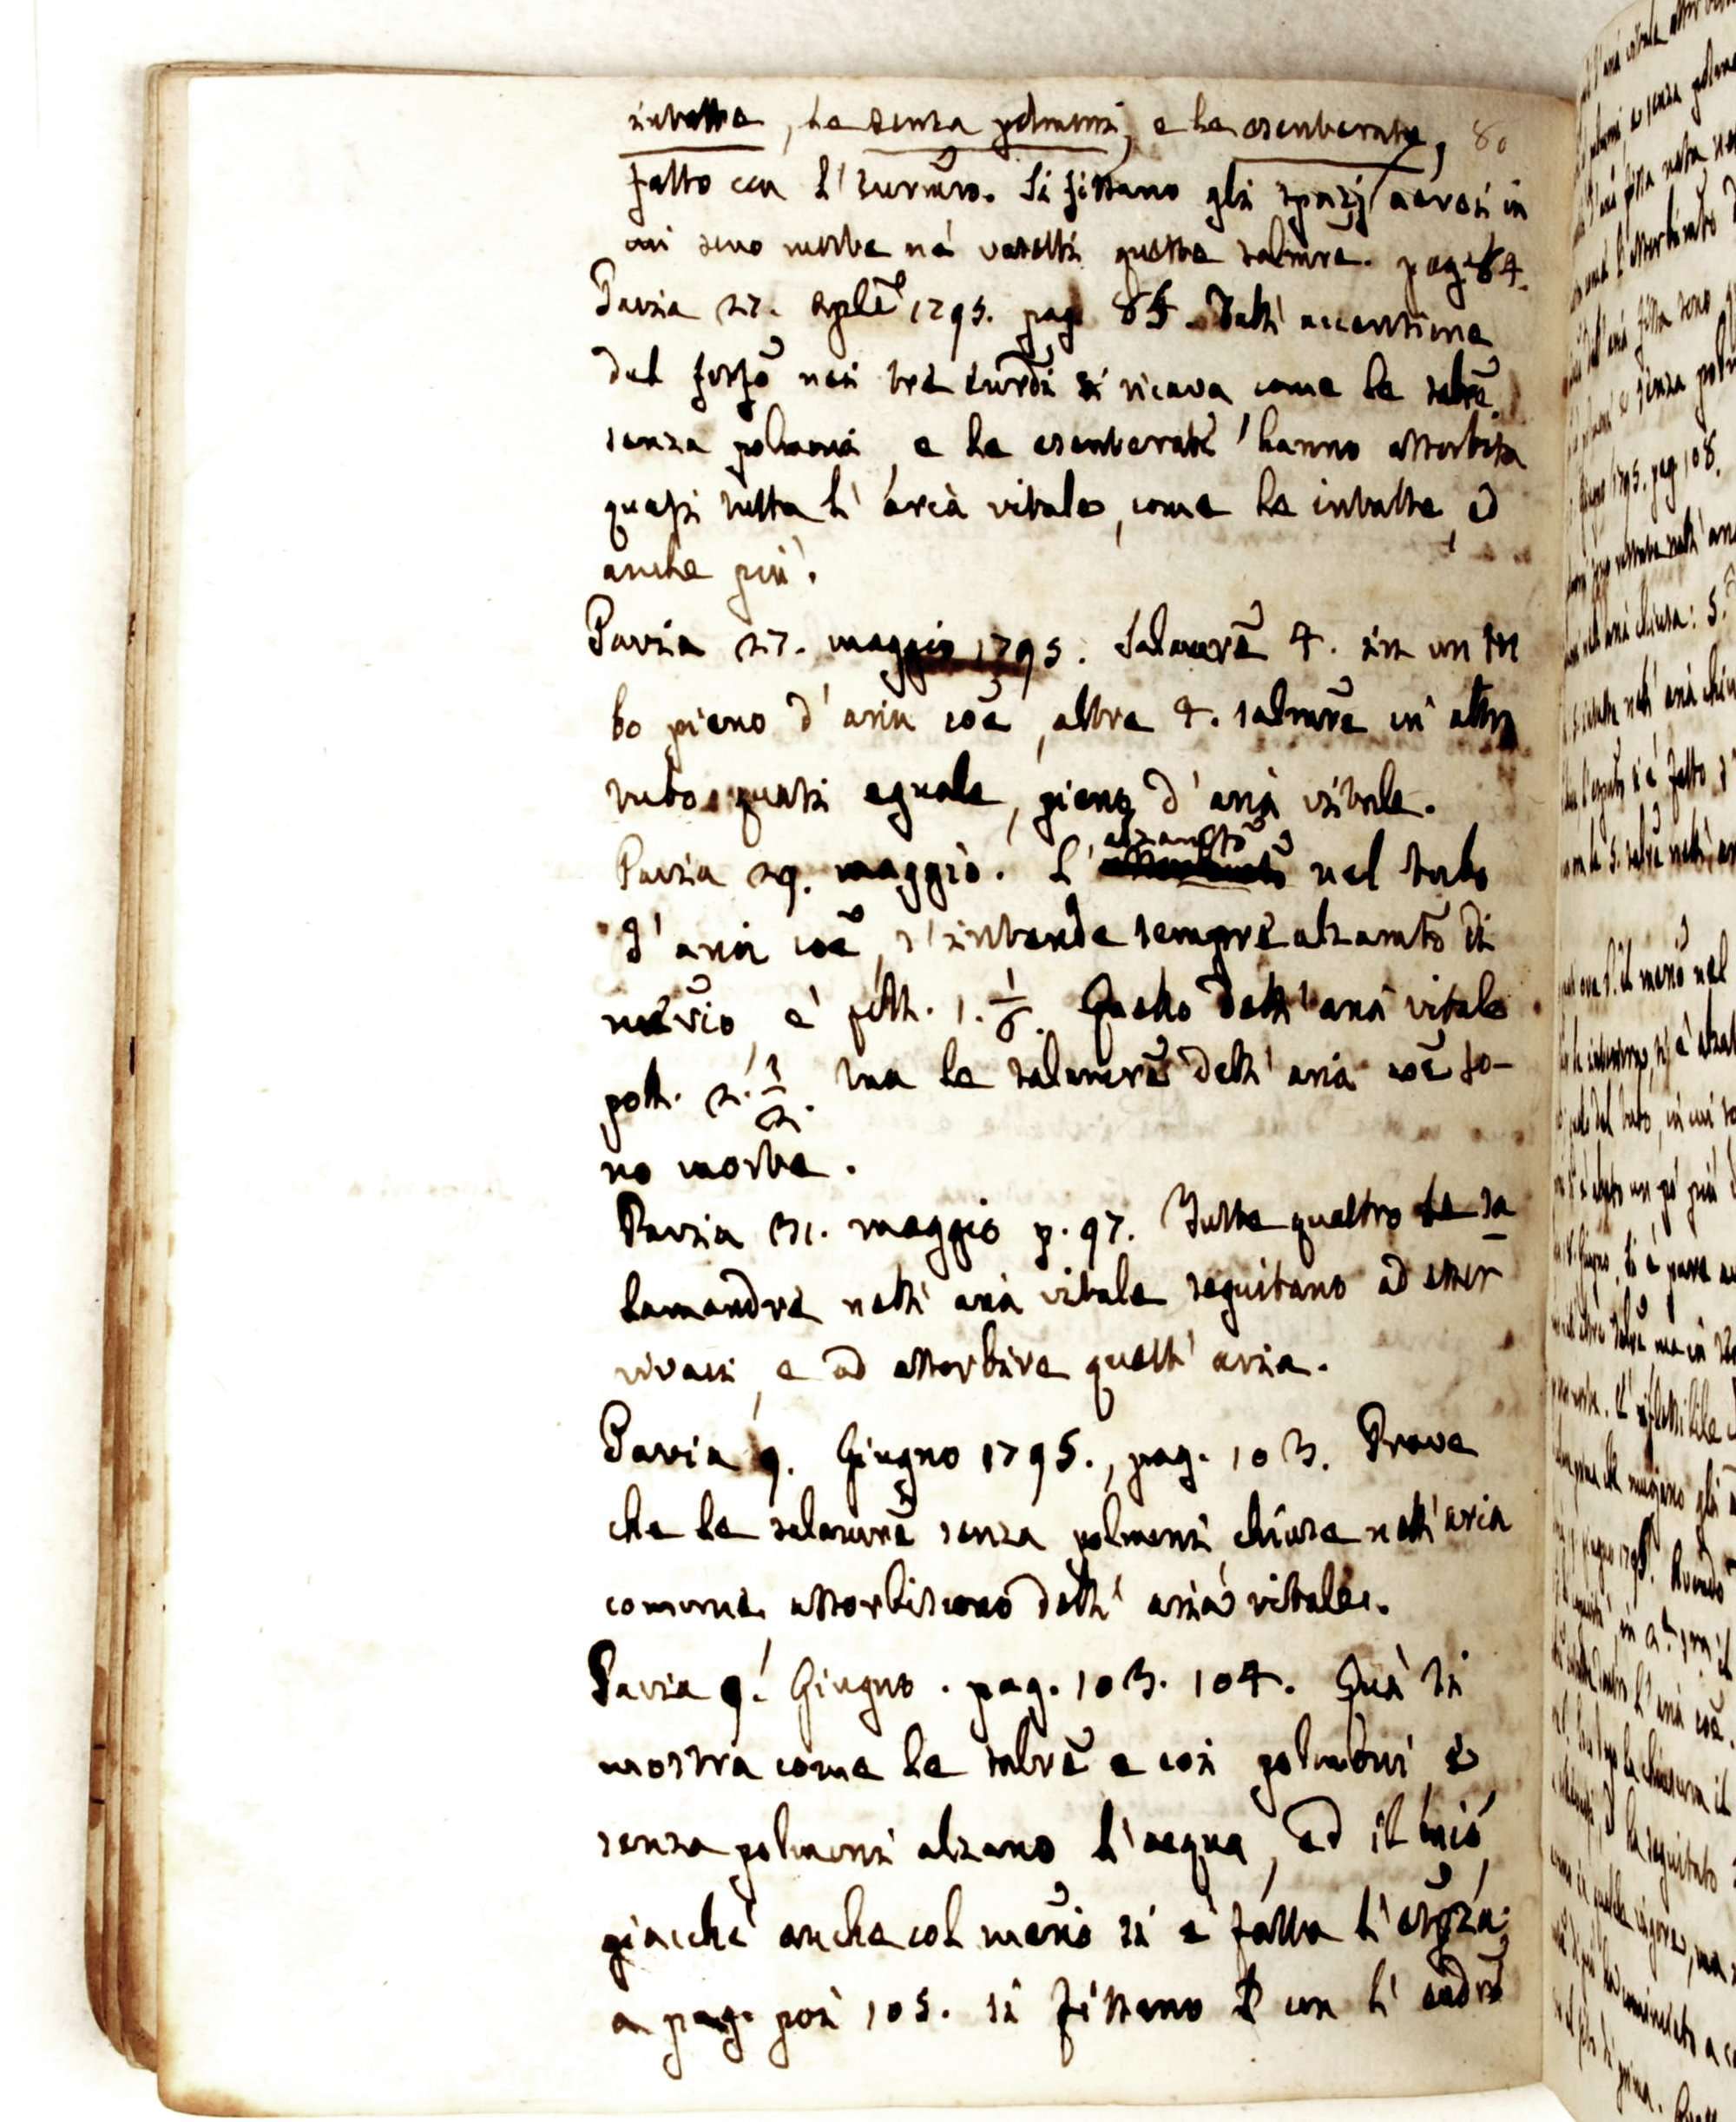 intatte, le senza polmoni, e le esenterate, 80
fatto con l' Si fissano gli spazj aerosi in
cui sono morte ne' vasetti queste salmre. pag. 84.
Pavia 27. Aple 1795. pag. 85. Dall' accensione
del fosfo nei tre si ricava come le salre
senza polmoni, e le esenterate hanno assorbita
quasi tutta l' aria vitale, come le intatte, ed
anche più.
Pavia 27. maggio 1795. Salamre 4. in un tu
bo pieno d' aria coe, altre 4. salmre in altro
tubo quasi eguale, pieno d' aria vitale.
Pavia 29. maggio. L' alzamto nel tubo
d' aria coe, s' intende sempre alzamto di
mercio, è poll. 1. 1/6. Quello dell' aria vitale
poll. 2. 1/2. ma le salamre dell' aria coe so-
no morte.
Pavia 31. maggio p. 97. Tutte quattro le sa
lamandre nell' aria vitale seguitano ad esser
vivaci, e ad assorbire quell' aria.
Pavia 9. Giugno 1795., pag. 103. Prove
che le salamre senza polmoni chiuse nell' aria
comune assorbiscono dell' aria vitale.
Pavia 9. Giugno. pag. 103. 104. Quà si
mostra come le salre e coi polmoni e
senza polmoni alzano l' acqua, ed il mio,
giacchè anche col merio si è fatta l' espza:
a pag. poi 105. si fissano con l'